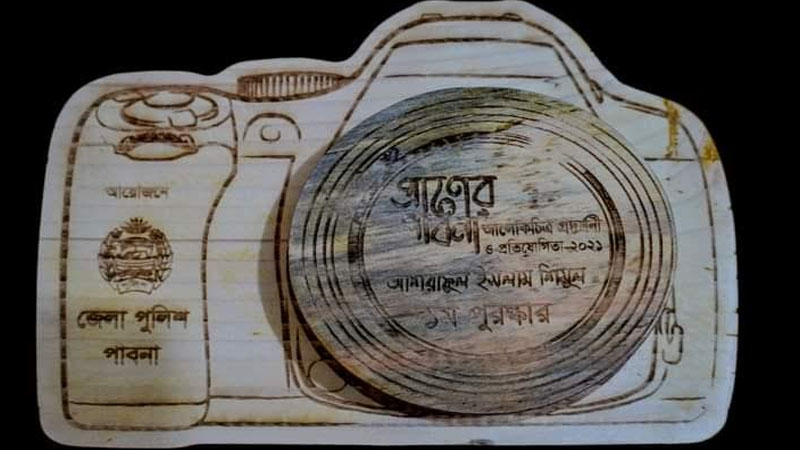 আয়োজনে
জেলা পুলিশ
পাবনা
প্রাণের
পাবনা
আলোকচিত্র প্রদর্শনী
ও প্রতিযোগিতা-২০২১
আশরাফুল ইসলাম শিমুল
১ম পুরস্কার